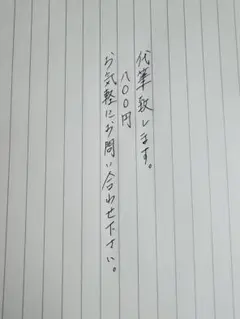 代筆致します。
八〇〇円
お気軽にお問い合わせ下さい。